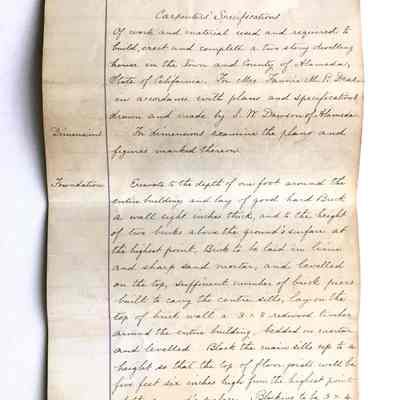 Carpenters' Specifications
Of work and material used and required to
build, erect and complete a two story dwelling
house in the town and County of Alameda,
State of California. For Mrs. Fannie M. P. Deal
in acordance with plans and specifications
drawn and made by J. W. Dawson of Alameda
Dimensions
For dimensions examine the plans and
figures marked thereon
Foundation
Excavate to the depth of one foot around the
entire building and lay of good hard Brick
a wall eight inches thick, and to the height
of two bricks above the ground's surface at
the highest point, Brick to be laid in lime
and sharp sand mortar, and levelled
on the top, sufficient number of brick piers
built to carry the centre sills, lay on the
top of brick wall a 3 x 8 redwood timber
around the entire building, bedded in mortar
and levelled. Block the main sills up to a
height so that the top of floor joists will be
five feet six inches high from the highest point
Blocking to be 3 x 4